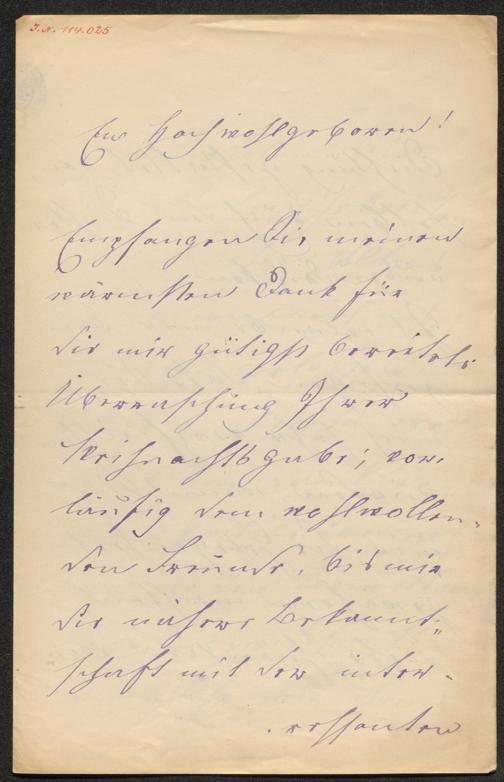 I.N. 114.025
Ew Hochwohlgeboren!
Empfangen Sie meinen
wärmsten Dank für
die mir gütigst bereitete
Überraschung Ihrer
Weihnachtsgabe; vor-
läufig dem wohlwollen-
den Freunde, bis mir
die nähere Bekannt-
schaft mit der inter-
essanten